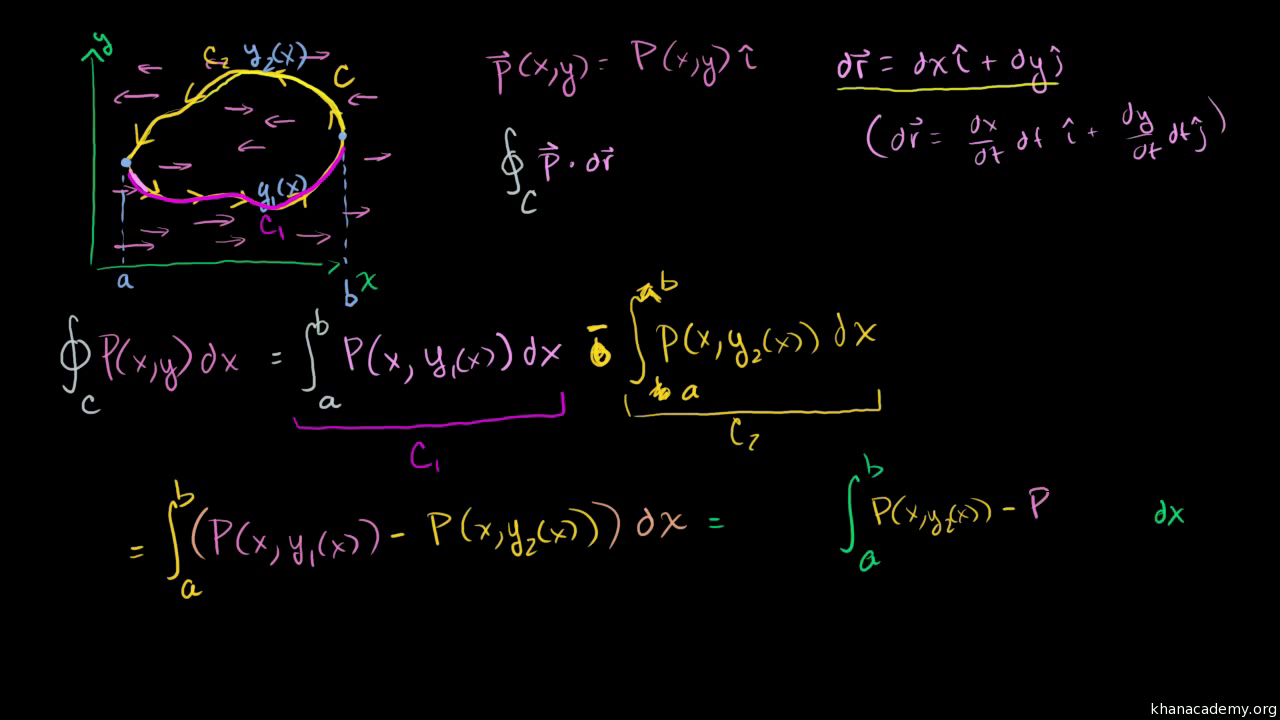 y
C₂ y₂(x)
C
y₁(x)
C₁
a
b
x
p⃗(x,y) = P(x,y) î
dr⃗ = dx î + dy ĵ
(dr⃗ = dx/dt dt î + dy/dt dt ĵ)
∮_C p⃗ · dr⃗
∮_C P(x,y) dx = ∫_a^b P(x, y₁(x)) dx - ∫_a^b P(x, y₂(x)) dx
C₁
C₂
= ∫_a^b (P(x, y₁(x)) - P(x, y₂(x))) dx = ∫_a^b P(x, y₂(x)) - P dx
khanacademy.org